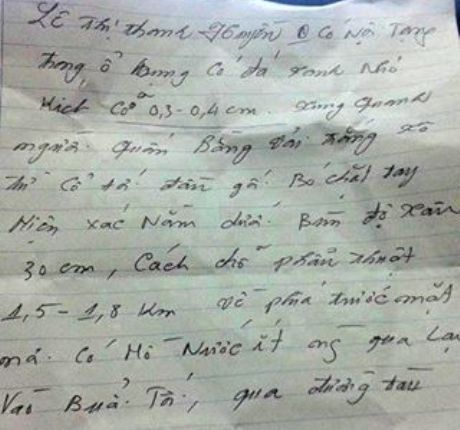 Lê thị thanh Huyền có Nội Tạng
trong ổ bụng có đá xanh Nhỏ
Kích cỡ 0,3-0,4 cm. xung quanh
người quấn Bằng vải trắng
thì cổ tá đàn gá Bó chặt tay
Hiện xác Nằm dưới Bùn độ sâu
30 cm, Cách chỗ phẩu thuật
1,5-1,8 Km về phía trước mặt
má. Có Hồ Nước ít ng qua lại
Vào Buổi Tối, qua đường tàu